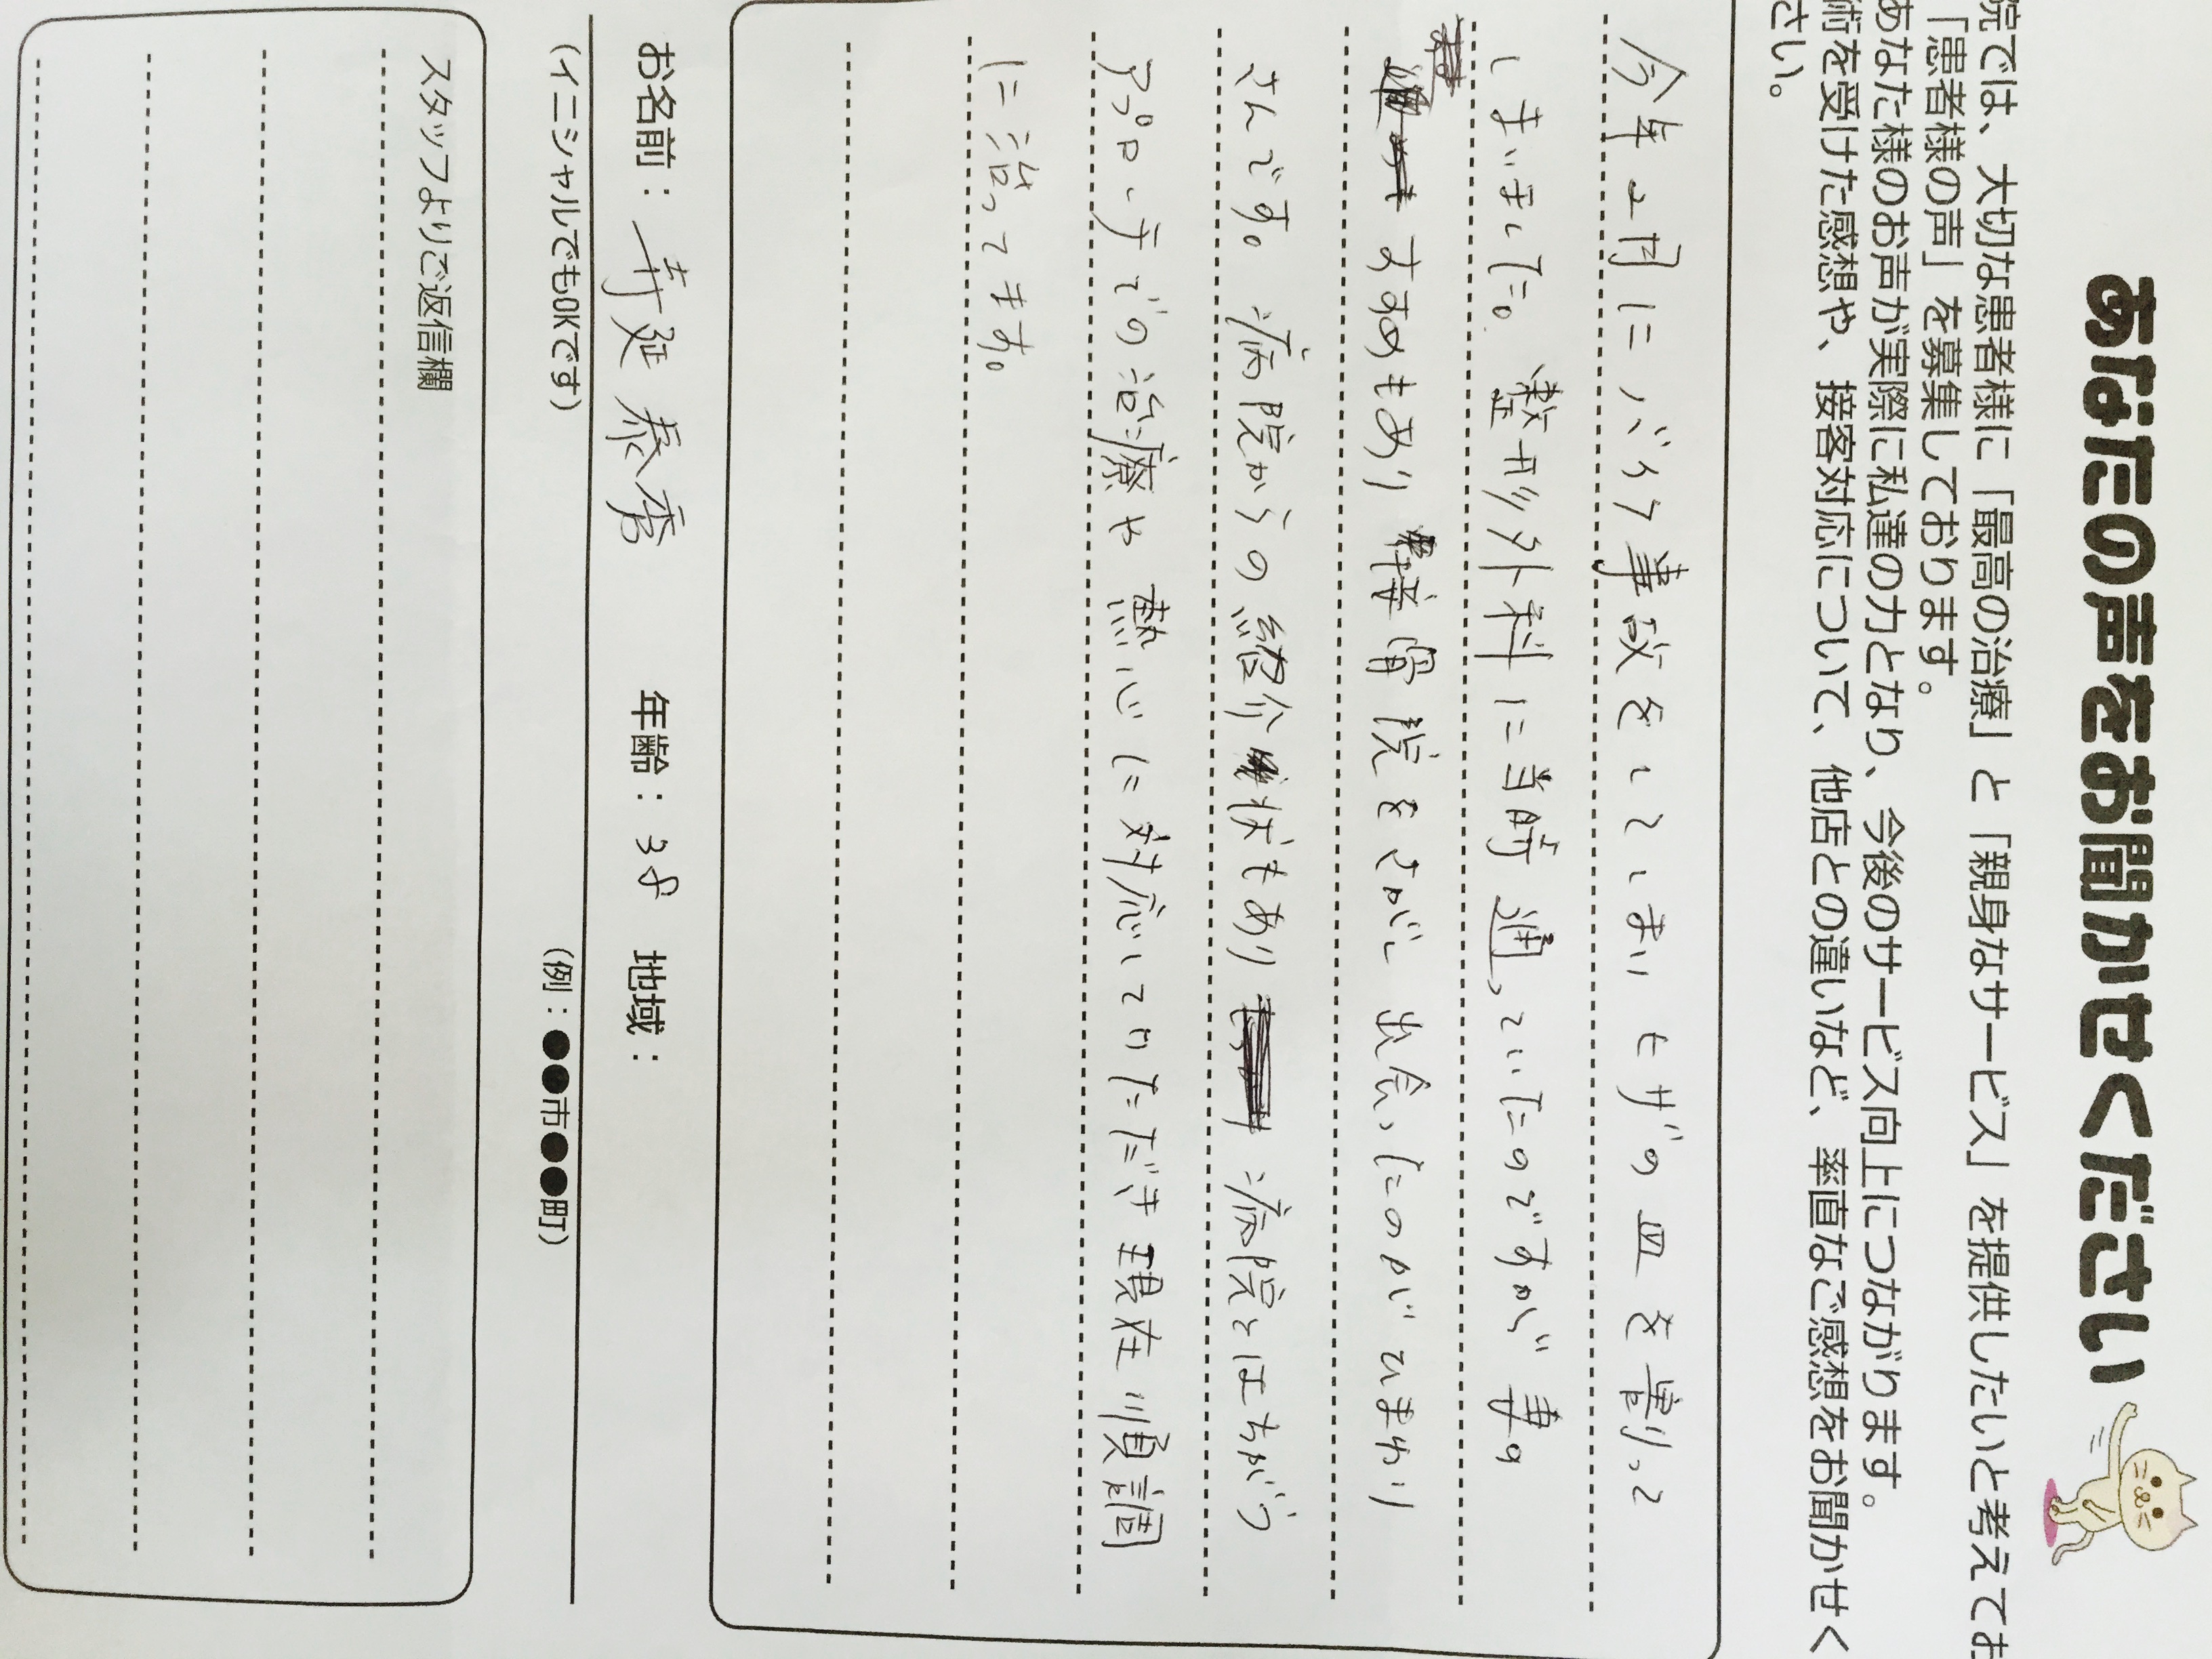 あなたの声をお聞かせください
院では、大切な患者様に「最高の治療」と「親身なサービス」を提供したいと考えてお
「患者様の声」を募集しております。
あなた様のお声が実際に私達の力となり、今後のサービス向上につながります。
術を受けた感想や、接客対応について、他店との違いなど、率直なご感想をお聞かせく
さい。
今年2月にバイク事故をしてしまい ヒザの皿を割って
しまいました。整形外科に当時通っていたのですが 妻の
すすめもあり 接骨院をさがし 出会ったのが ひまわり
さんです。病院からの紹介状もあり 病院とはちがう
アプローチでの治療や 熱心に対応していただき 現在 順調
に治ってます。
お名前: 寿延 泰秀 年齢: 38 地域:
(イニシャルでもOKです) (例:●●市●●町)
スタッフよりご返信欄